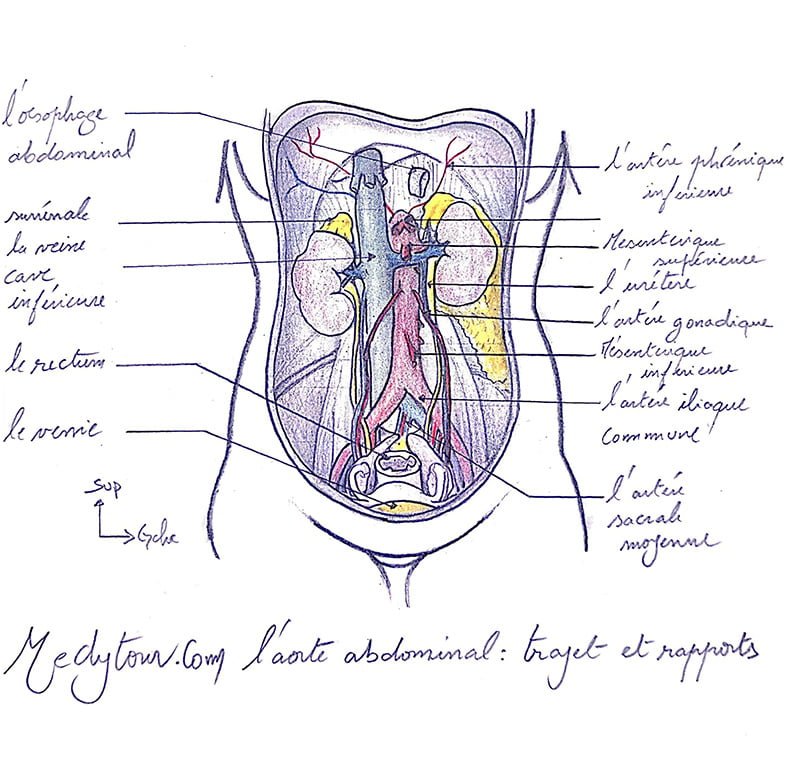 l'œsophage
abdominal
surrénale
la veine
cave
inférieure
le rectum
le vessie
Sup
Gche
l'artère phrénique
inférieure
Mesenterique
supérieure
l'urétère
l'artère gonadique
Mésenterique
inférieure
l'artère iliaque
commune
l'artère
sacrale
moyenne
Medytour.Com l'aorte abdominal : trajet et rapports